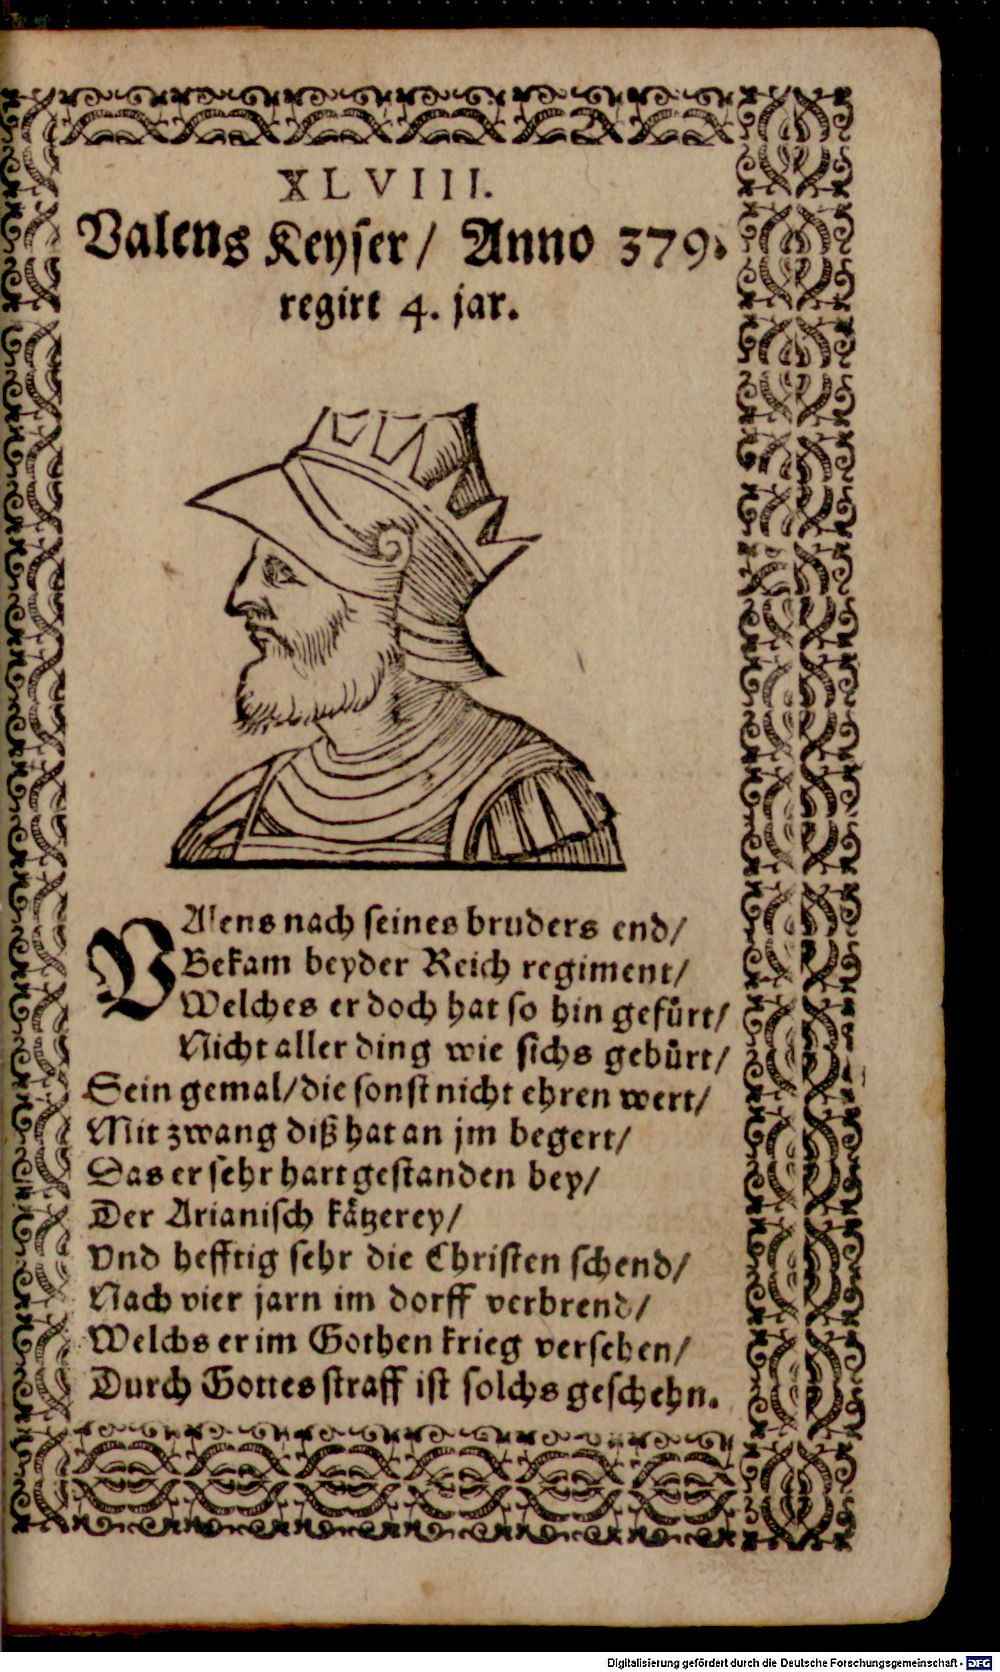 XLVIII.
Valens Keyser/ Anno 379.
regirt 4. jar.
VAlens nach seines bruders end/
Bekam beyder Reich regiment/
Welches er doch hat so hin gefürt/
Nicht aller ding wie sichs gebürt/
Sein gemal/ die sonst nicht ehren wert/
Mit zwang diß hat an jm begert/
Das er sehr hart gestanden bey/
Der Arianisch kätzerey/
Vnd hefftig sehr die Christen schend/
Nach vier jarn im dorff verbrend/
Welchs er im Gothen krieg versehen/
Durch Gottes straff ist solchs geschehn.
Digitalisierung gefördert durch die Deutsche Forschungsgemeinschaft - DFG